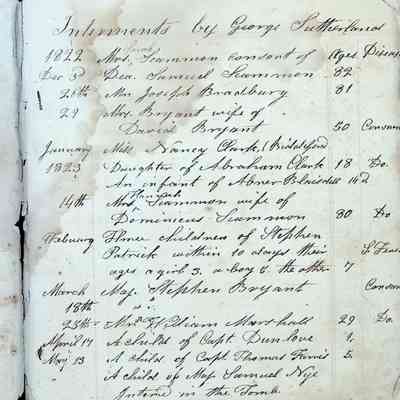 Interments by George Sutherland
1822 Mrs. Sarah Scammon consort of Ages Disease
Dec 8 Dea. Samuel Scammon 82
26th Mr. Joseph Bradbury 81
29 Mrs. Bryant wife of
David Bryant 50 Consum
January Miss Nancy Clark, (Biddeford
1823 Daughter of Abraham Clark 18 Do.
An infant of Abner Blaisdell 14d
14th Mrs. Hannah Scammon wife of
Dominicus Scammon 80 Do
Febuary Three children of Stephen
Patrick within 10 days their
ages a girl 3. a boy 6. the other 7
March Maj. Stephen Bryant Consum
18th
25th Mrs. William Marshall 29 Do.
April 17 A child of Capt. Dunlove 1,
May 13 A child of Capt Thomas 5.
A child of Maj Samuel Nye
Intered in the Tomb